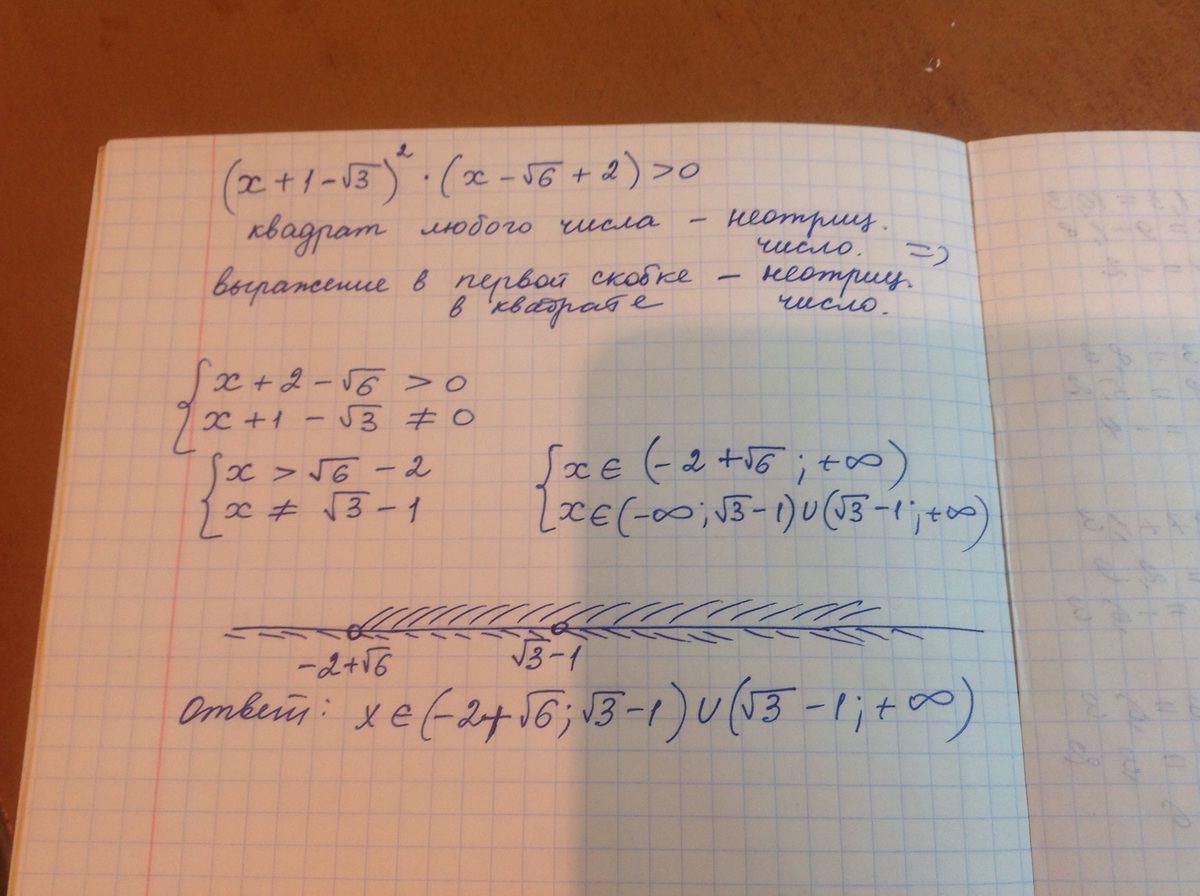 (x + 1 - √3)² · (x - √6 + 2) > 0
квадрат любого числа - неотриц.
число. =>
выражение в первой скобке - неотриц.
в квадрате число.
{ x + 2 - √6 > 0
x + 1 - √3 ≠ 0
{ x > √6 - 2
x ≠ √3 - 1
{ x ∈ (-2 + √6 ; +∞)
x ∈ (-∞ ; √3 - 1) ∪ (√3 - 1 ; +∞)
-2 + √6 √3 - 1
Ответ: x ∈ (-2 + √6 ; √3 - 1) ∪ (√3 - 1 ; +∞)